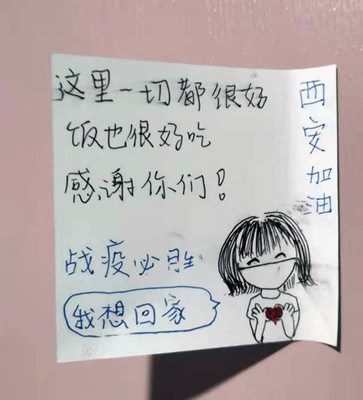 这里一切都很好
饭也很好吃
感谢你们!
战疫必胜
我想回家
西安加油